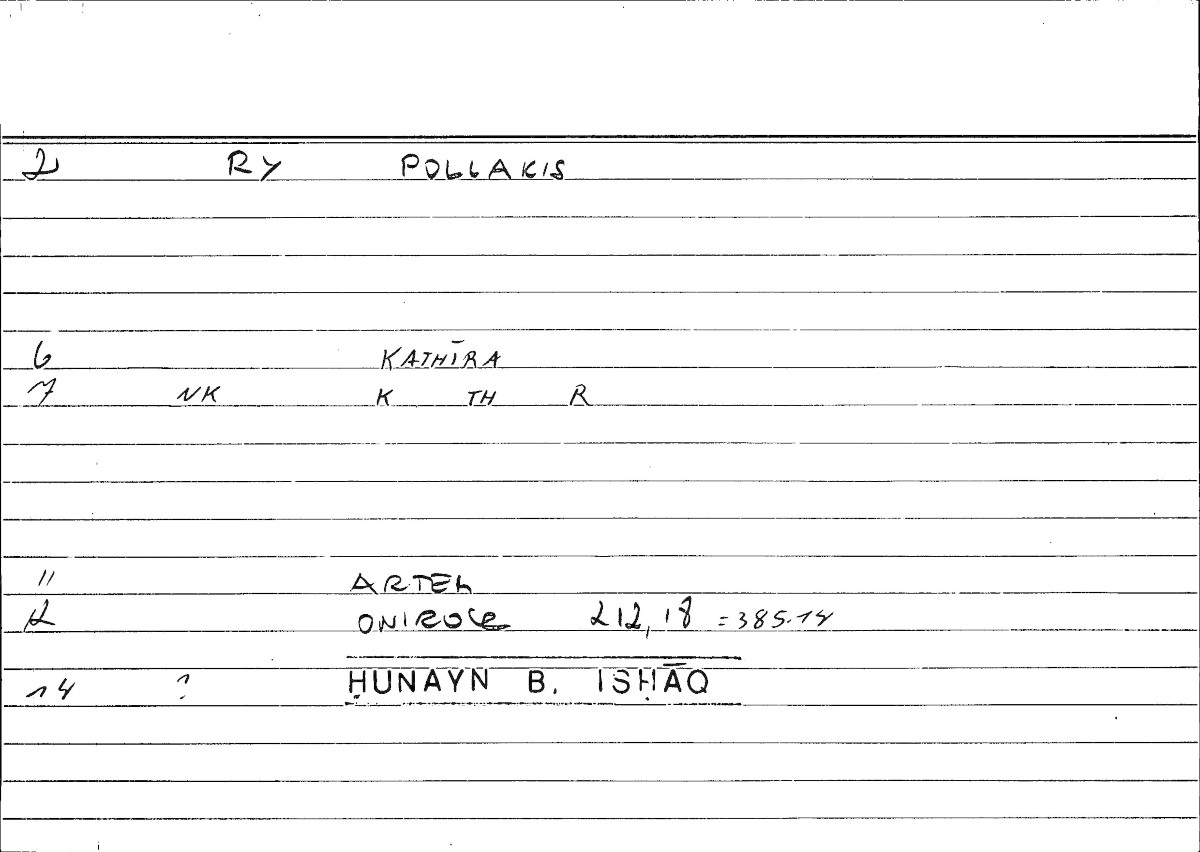 2 RY POLLAKIS
6 KATHĪRA
7 NK K TH R
11 ARTEL
12 ONIROCR 212,18 = 385.14
14 ? ḤUNAYN B. ISḤĀQ